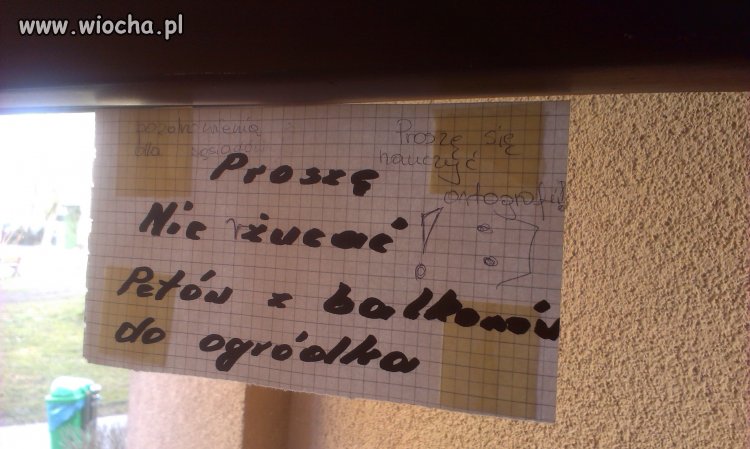 www.wiocha.pl
pozdrowienia
dla sąsiadów
Proszę się
nauczyć
ortografii!
Proszę
Nie rżucać ! :]
Petów z balkonów
do ogródka